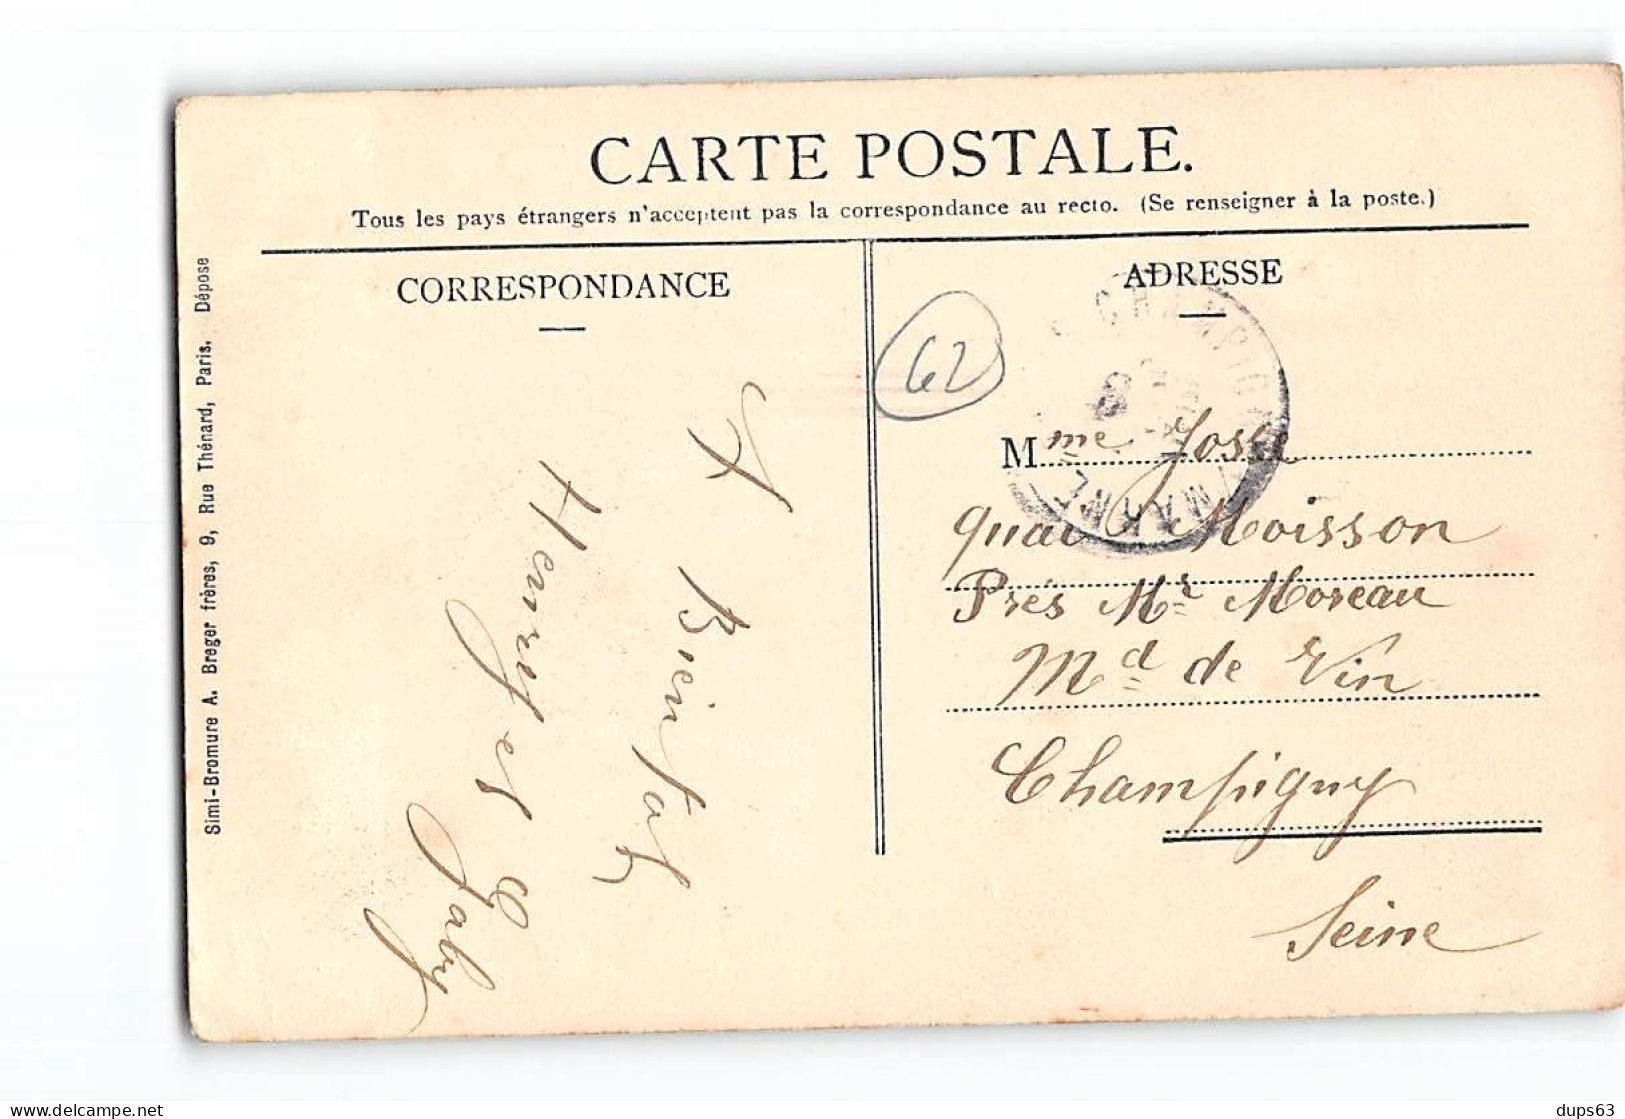 CARTE POSTALE.
Tous les pays étrangers n'acceptent pas la correspondance au recto. (Se renseigner à la poste.)
Simi-Bromure A. Breger frères, 9, Rue Thénard, Paris. Déposé
CORRESPONDANCE
A
Bientot
Henry et
Gaby
ADRESSE
62
CHAMPIGNY
MARNE
Mme Josse
quai Moisson
Prés Mr Moreau
Md de Vin
Champigny
Seine
dups63